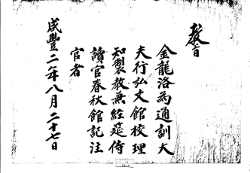 教旨
金龍洛爲通訓大
夫行弘文館校理
知製教兼經筵侍
讀官春秋館記注
官者
咸豐二年八月二十七日